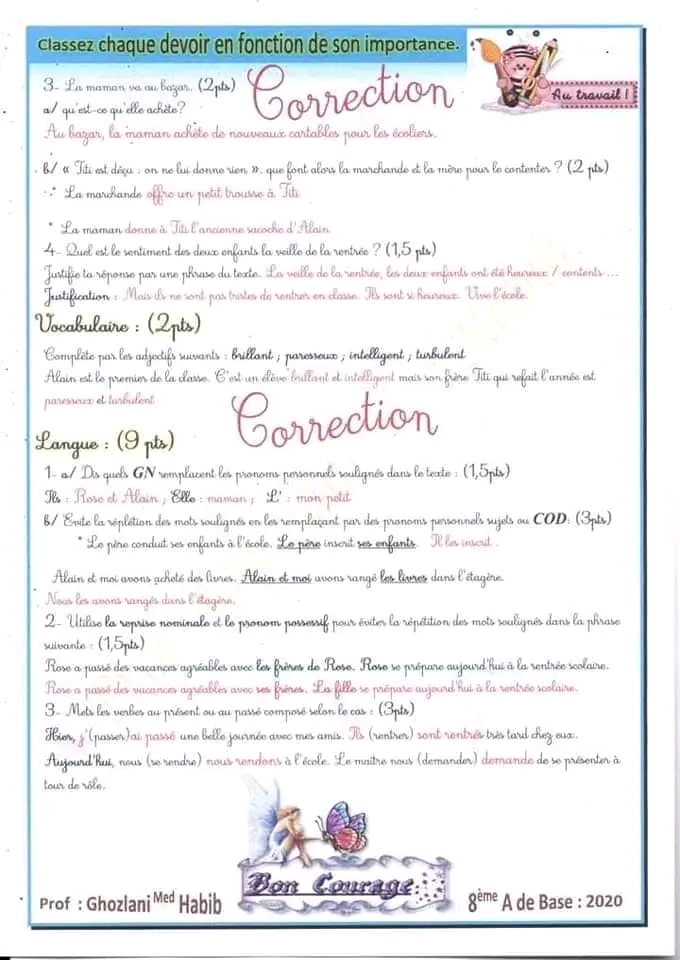 Classez chaque devoir en fonction de son importance.
Au travail !
3- La maman va au bazar. (2pts)
Correction
a/ qu'est-ce qu'elle achète?
Au bazar, la maman achète de nouveaux cartables pour les écoliers.
b/ « Titi est déçu : on ne lui donne rien ». que font alors la marchande et la mère pour le contenter ? (2 pts)
* La marchande offre un petit trousse à Titi
* La maman donne à Titi l'ancienne sacoche d'Alain
4- Quel est le sentiment des deux enfants la veille de la rentrée ? (1,5 pts)
Justifie ta réponse par une phrase du texte. La veille de la rentrée, les deux enfants ont été heureux / contents ...
Justification : Mais ils ne sont pas tristes de rentrer en classe. Ils sont si heureux. Vive l'école.
Vocabulaire : (2pts)
Complète par les adjectifs suivants : brillant ; paresseux ; intelligent ; turbulent
Alain est le premier de la classe. C'est un élève brillant et intelligent mais son frère Titi qui refait l'année est
paresseux et turbulent
Correction
Langue : (9 pts)
1- a/ Dis quels GN remplacent les pronoms personnels soulignés dans le texte : (1,5pts)
Ils : Rose et Alain ; Elle : maman ; L' : mon petit
b/ Evite la réplétion des mots soulignés en les remplaçant par des pronoms personnels sujets ou COD: (3pts)
* Le père conduit ses enfants à l'école. Le père inscrit ses enfants. Il les inscrit .
Alain et moi avons acheté des livres. Alain et moi avons rangé les livres dans l'étagère.
Nous les avons rangés dans l'étagère.
2- Utilise la reprise nominale et le pronom possessif pour éviter la répétition des mots soulignés dans la phrase
suivante : (1,5pts)
Rose a passé des vacances agréables avec les frères de Rose. Rose se prépare aujourd'hui à la rentrée scolaire.
Rose a passé des vacances agréables avec ses frères. La fille se prépare aujourd'hui à la rentrée scolaire.
3- Mets les verbes au présent ou au passé composé selon le cas : (3pts)
Hier, j'(passer)ai passé une belle journée avec mes amis. Ils (rentrer) sont rentrés très tard chez eux.
Aujourd'hui, nous (se rendre) nous rendons à l'école. Le maître nous (demander) demande de se présenter à
tour de rôle.
Bon Courage
Prof : Ghozlani Med Habib
8ème A de Base : 2020